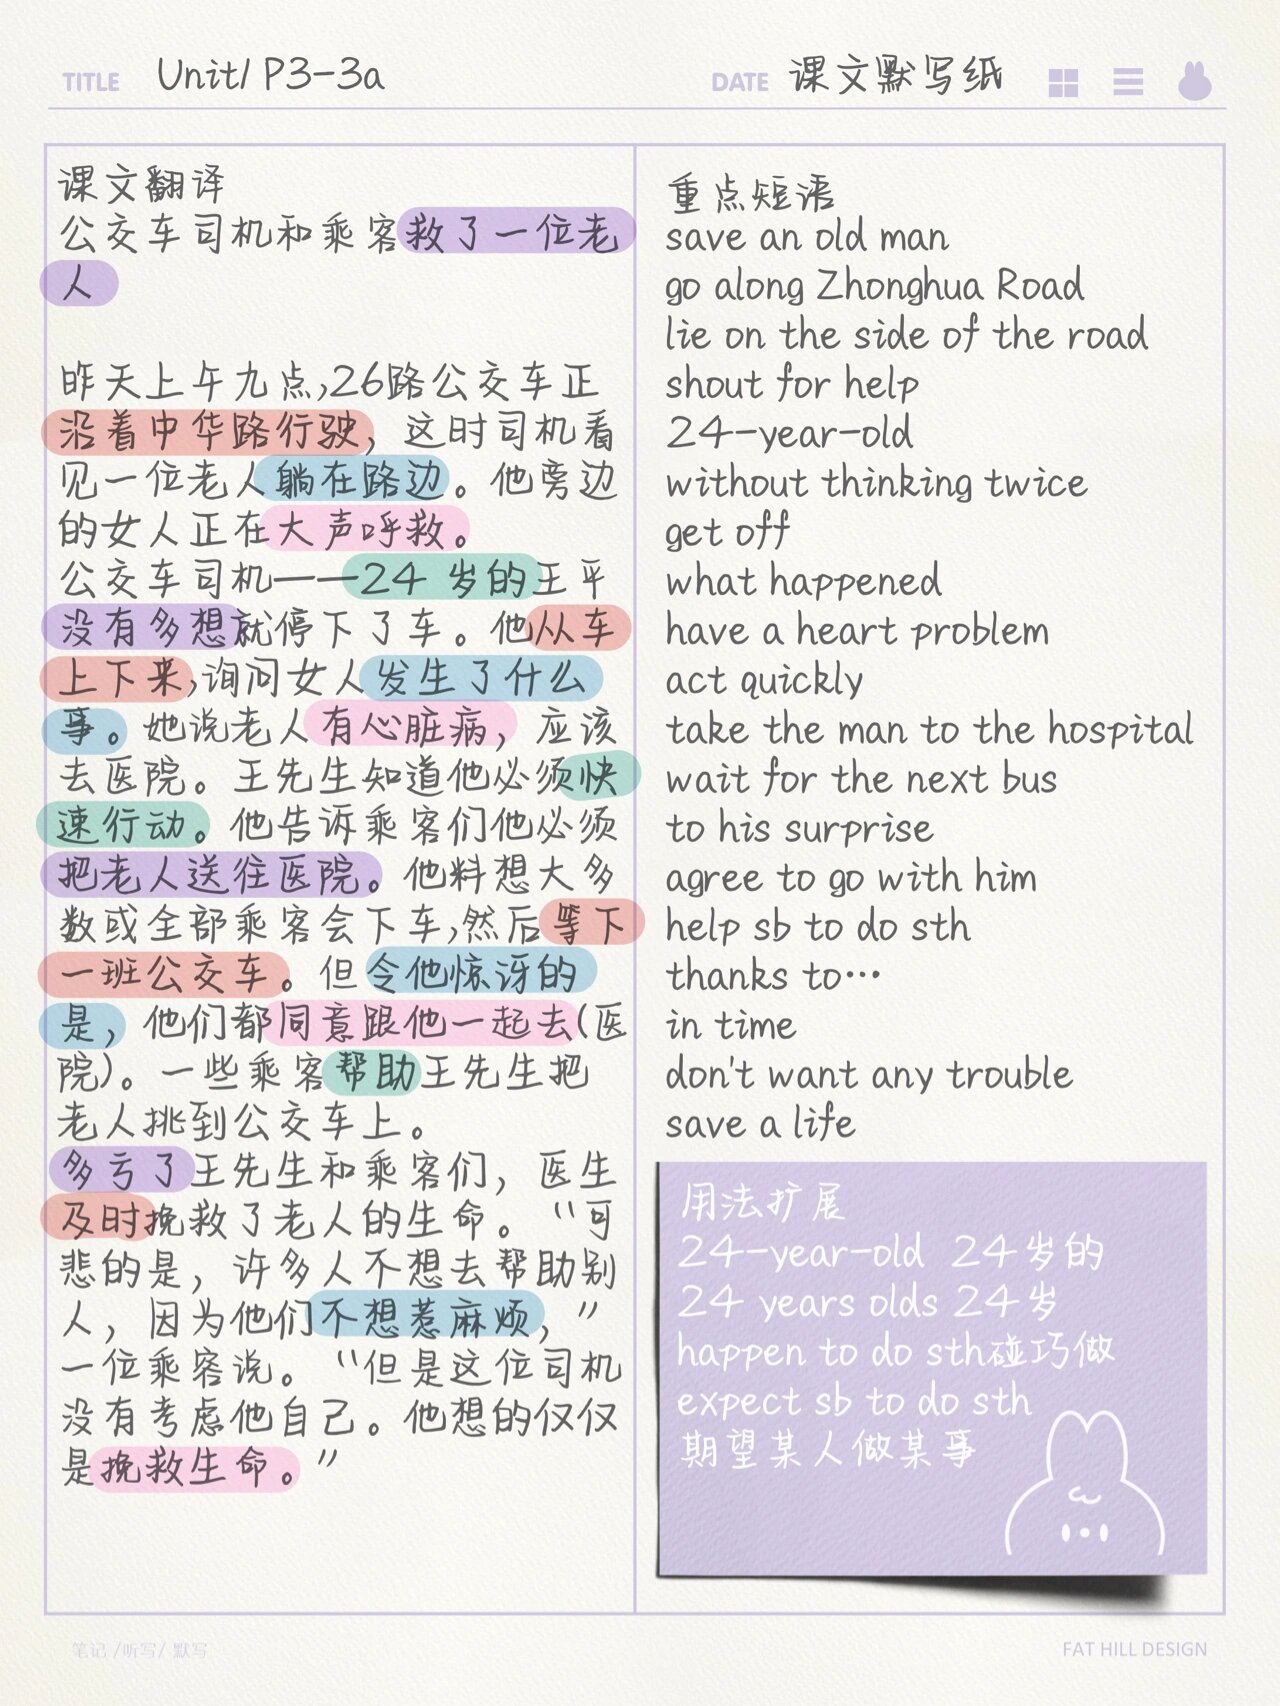 TITLE Unit1 P3-3a
DATE 课文默写纸
课文翻译
公交车司机和乘客救了一位老
人
昨天上午九点,26路公交车正
沿着中华路行驶，这时司机看
见一位老人躺在路边。他旁边
的女人正在大声呼救。
公交车司机——24 岁的王平
没有多想就停下了车。他从车
上下来,询问女人发生了什么
事。她说老人有心脏病，应该
去医院。王先生知道他必须快
速行动。他告诉乘客们他必须
把老人送往医院。他料想大多
数或全部乘客会下车,然后等下
一班公交车。但令他惊讶的
是，他们都同意跟他一起去(医
院)。一些乘客帮助王先生把
老人挑到公交车上。
多亏了王先生和乘客们，医生
及时挽救了老人的生命。“可
悲的是，许多人不想去帮助别
人，因为他们不想惹麻烦，”
一位乘客说。“但是这位司机
没有考虑他自己。他想的仅仅
是挽救生命。”
重点短语
save an old man
go along Zhonghua Road
lie on the side of the road
shout for help
24-year-old
without thinking twice
get off
what happened
have a heart problem
act quickly
take the man to the hospital
wait for the next bus
to his surprise
agree to go with him
help sb to do sth
thanks to…
in time
don't want any trouble
save a life
用法扩展
24-year-old 24岁的
24 years olds 24岁
happen to do sth碰巧做
expect sb to do sth
期望某人做某事
笔记 /听写/ 默写
FAT HILL DESIGN